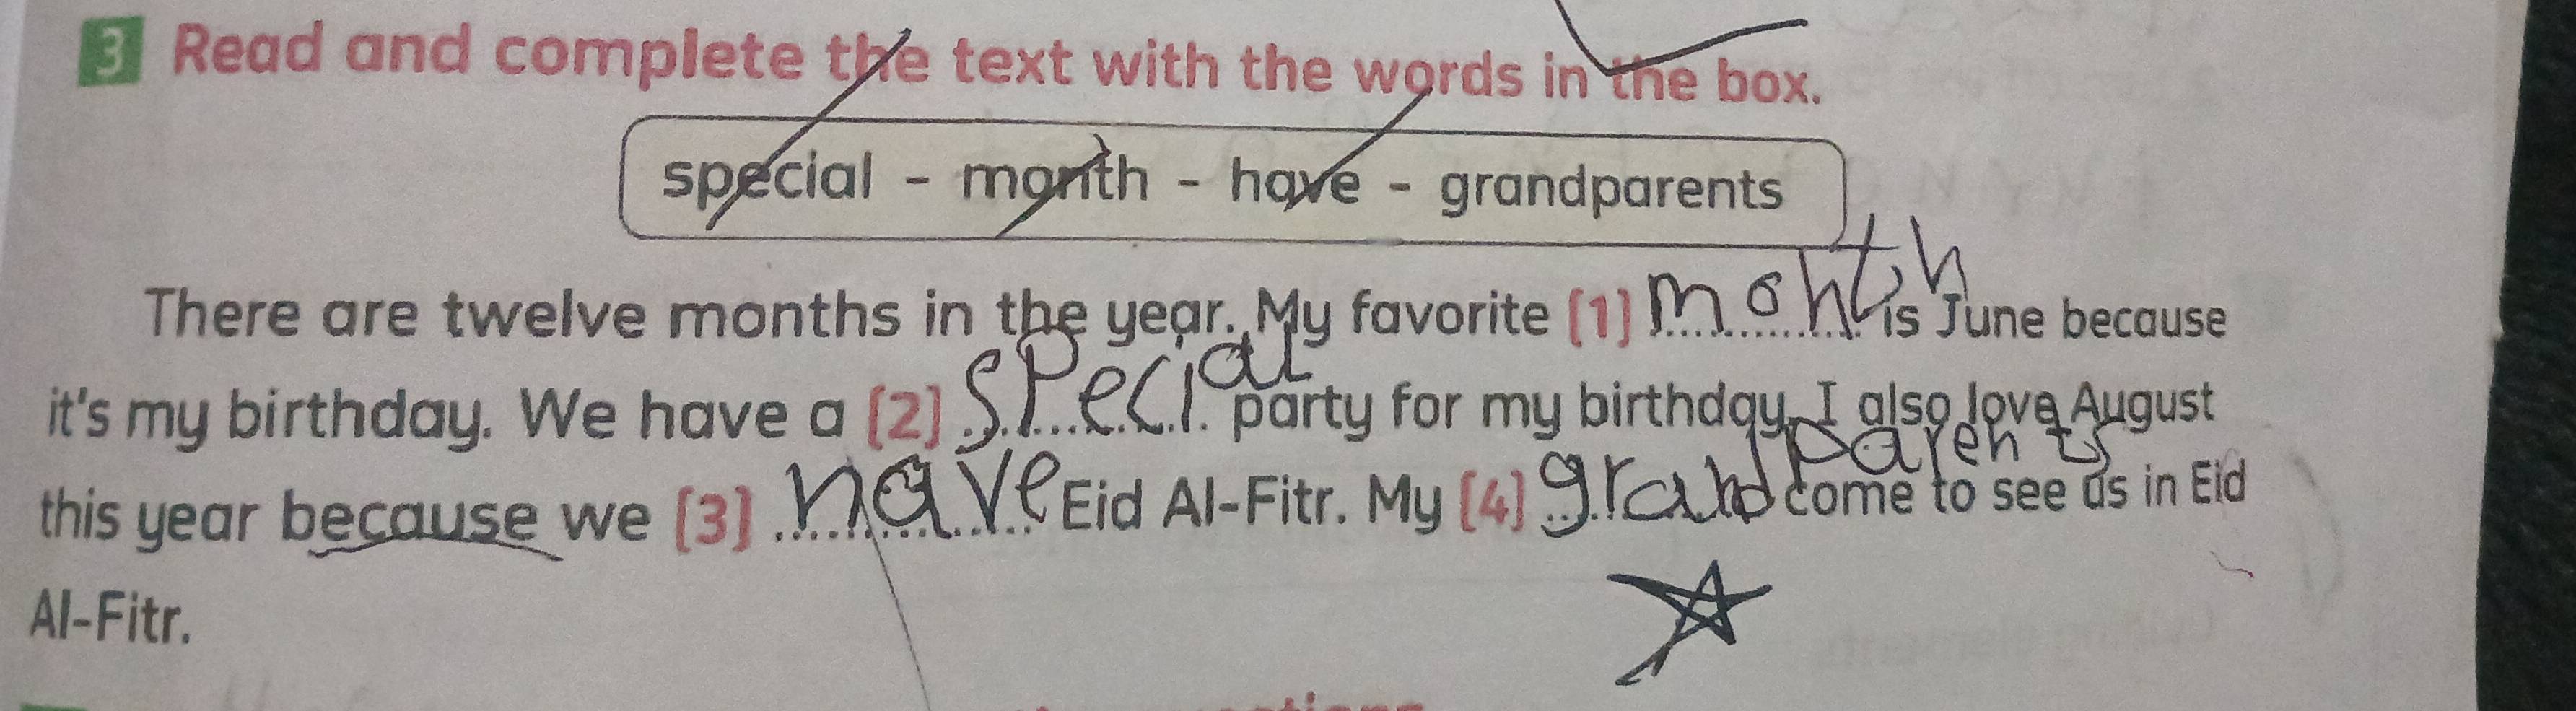 3 Read and complete the text with the words in the box.
special - month - have - grandparents
There are twelve months in the year. My favorite (1) month is June because
it's my birthday. We have a (2) special party for my birthday. I also love August
this year because we (3) have Eid Al-Fitr. My (4) grandparents come to see us in Eid
Al-Fitr.